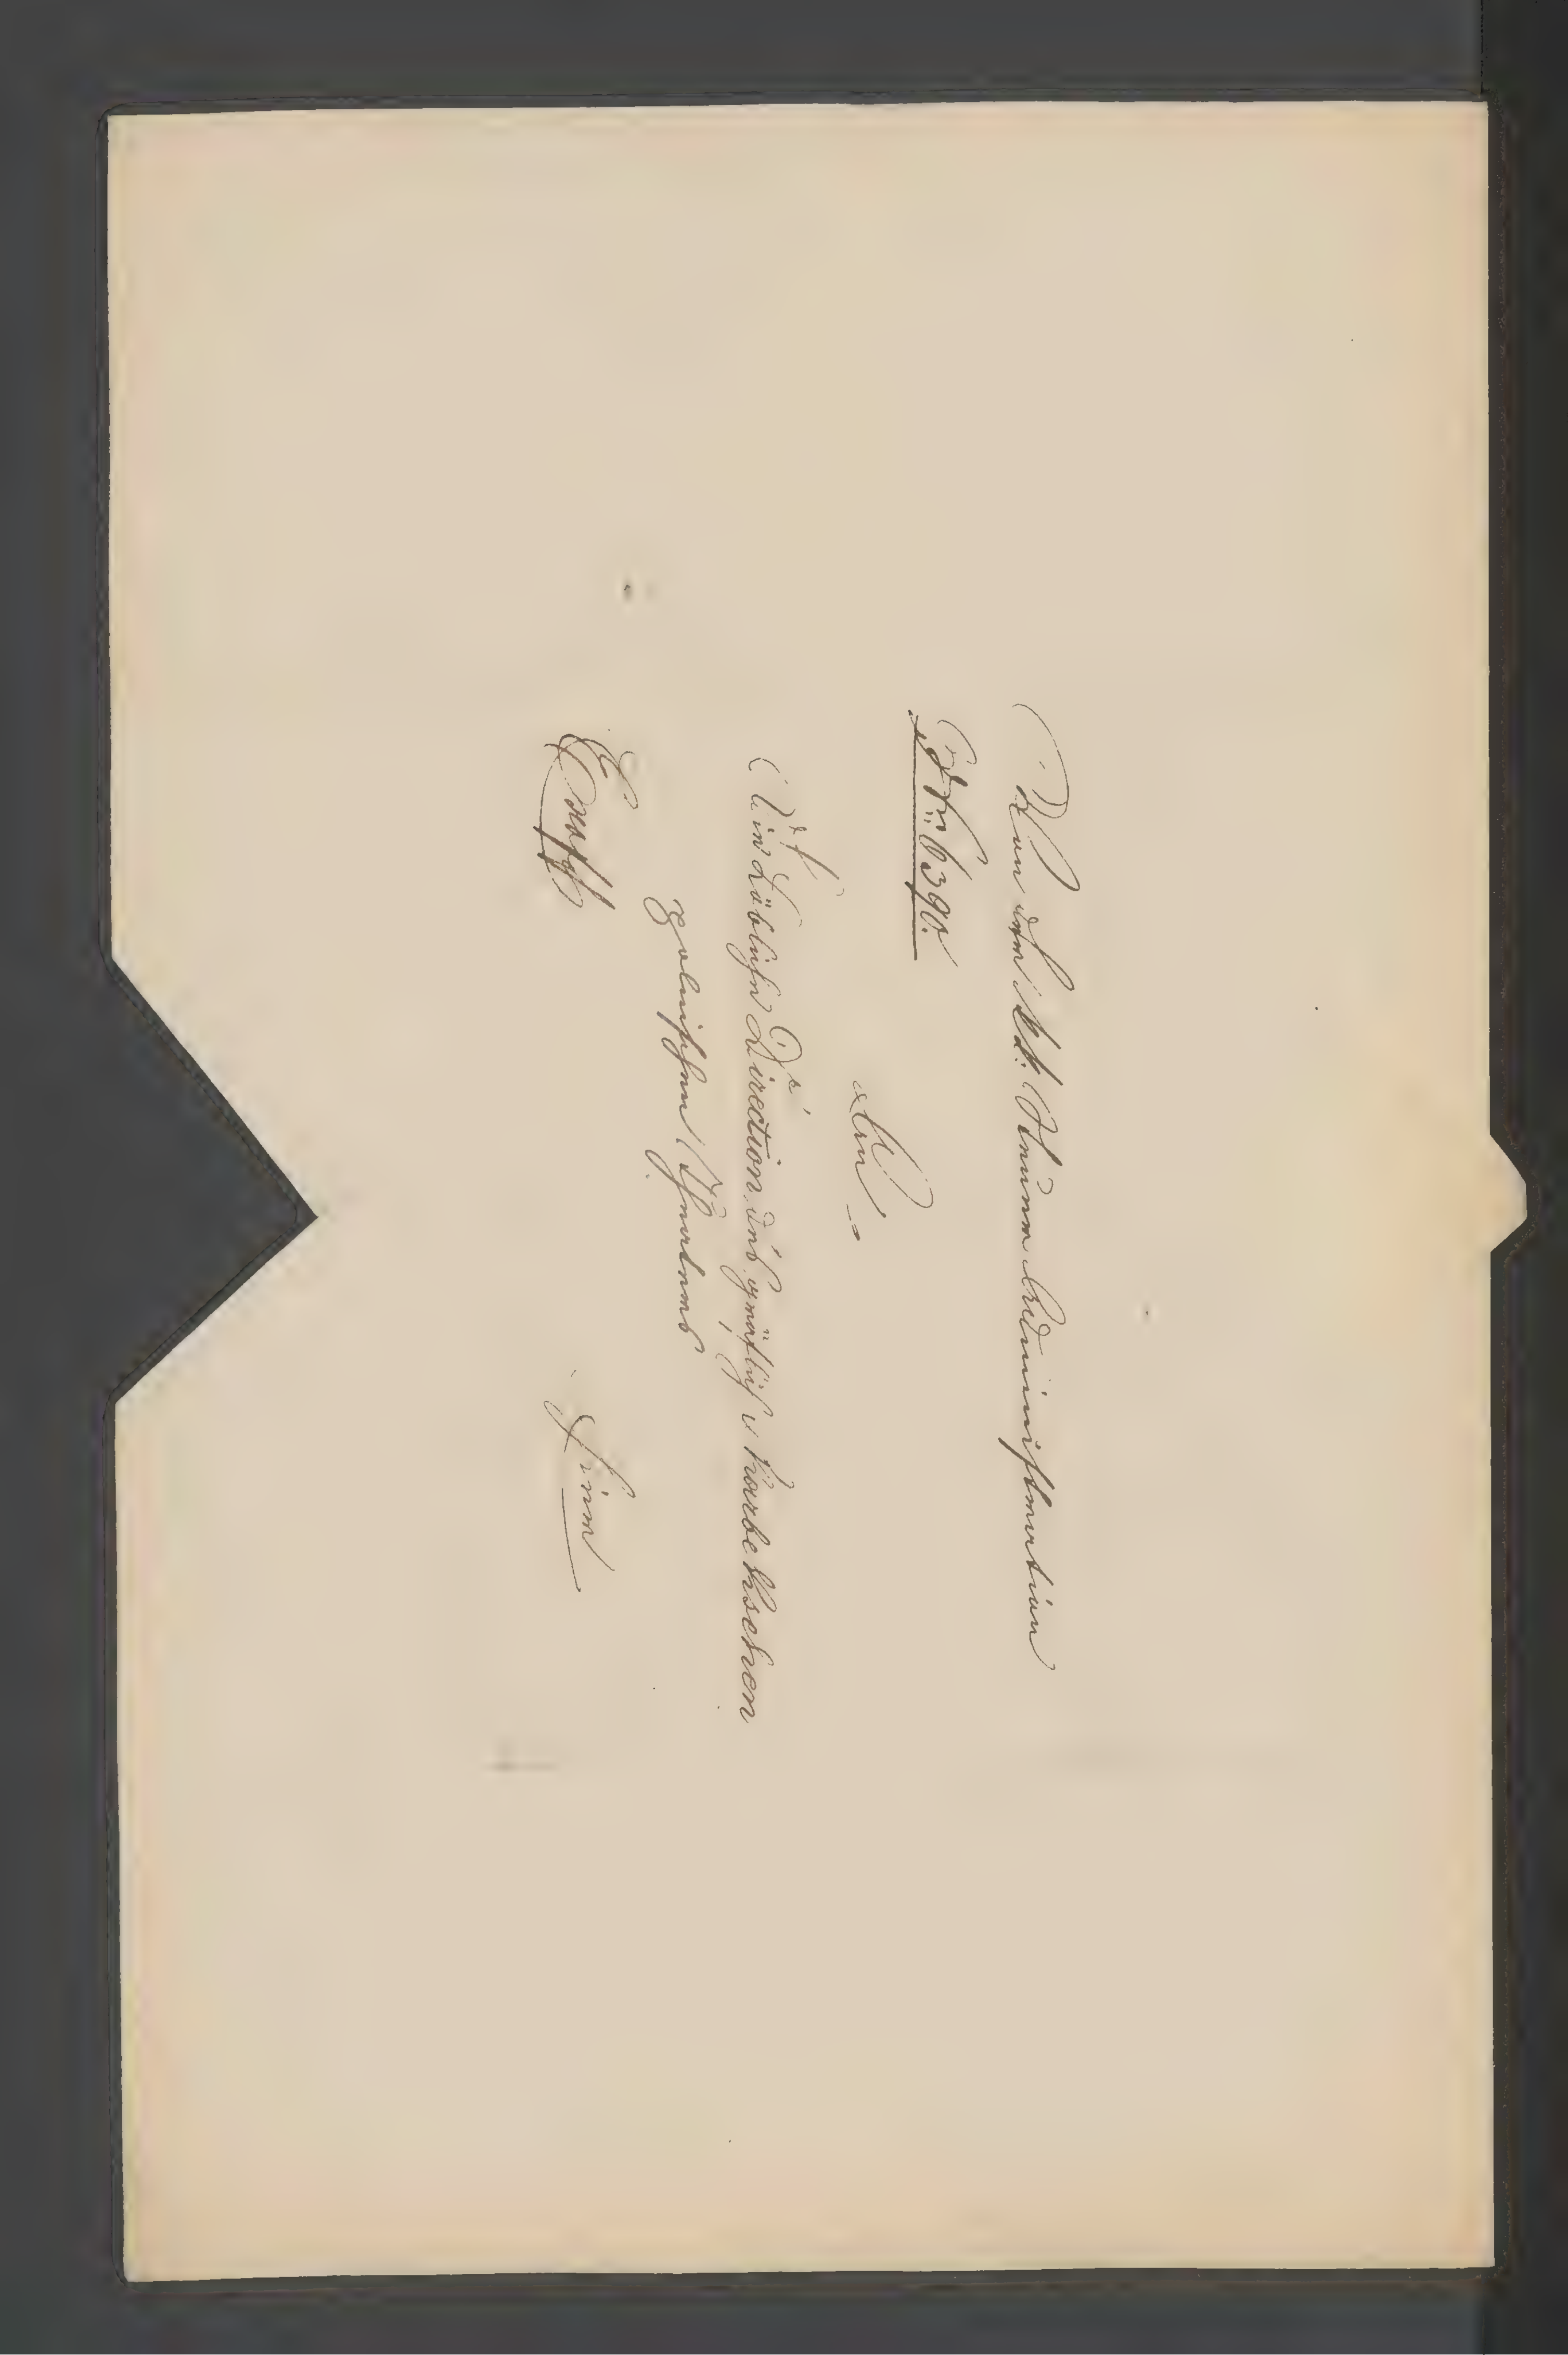 Von der k.k. Steuer Administration
Nr: 6390.
An
Eine Löbliche Direction des gräflich v Skarbekschen
polnischen Theaters
Exoff
hier